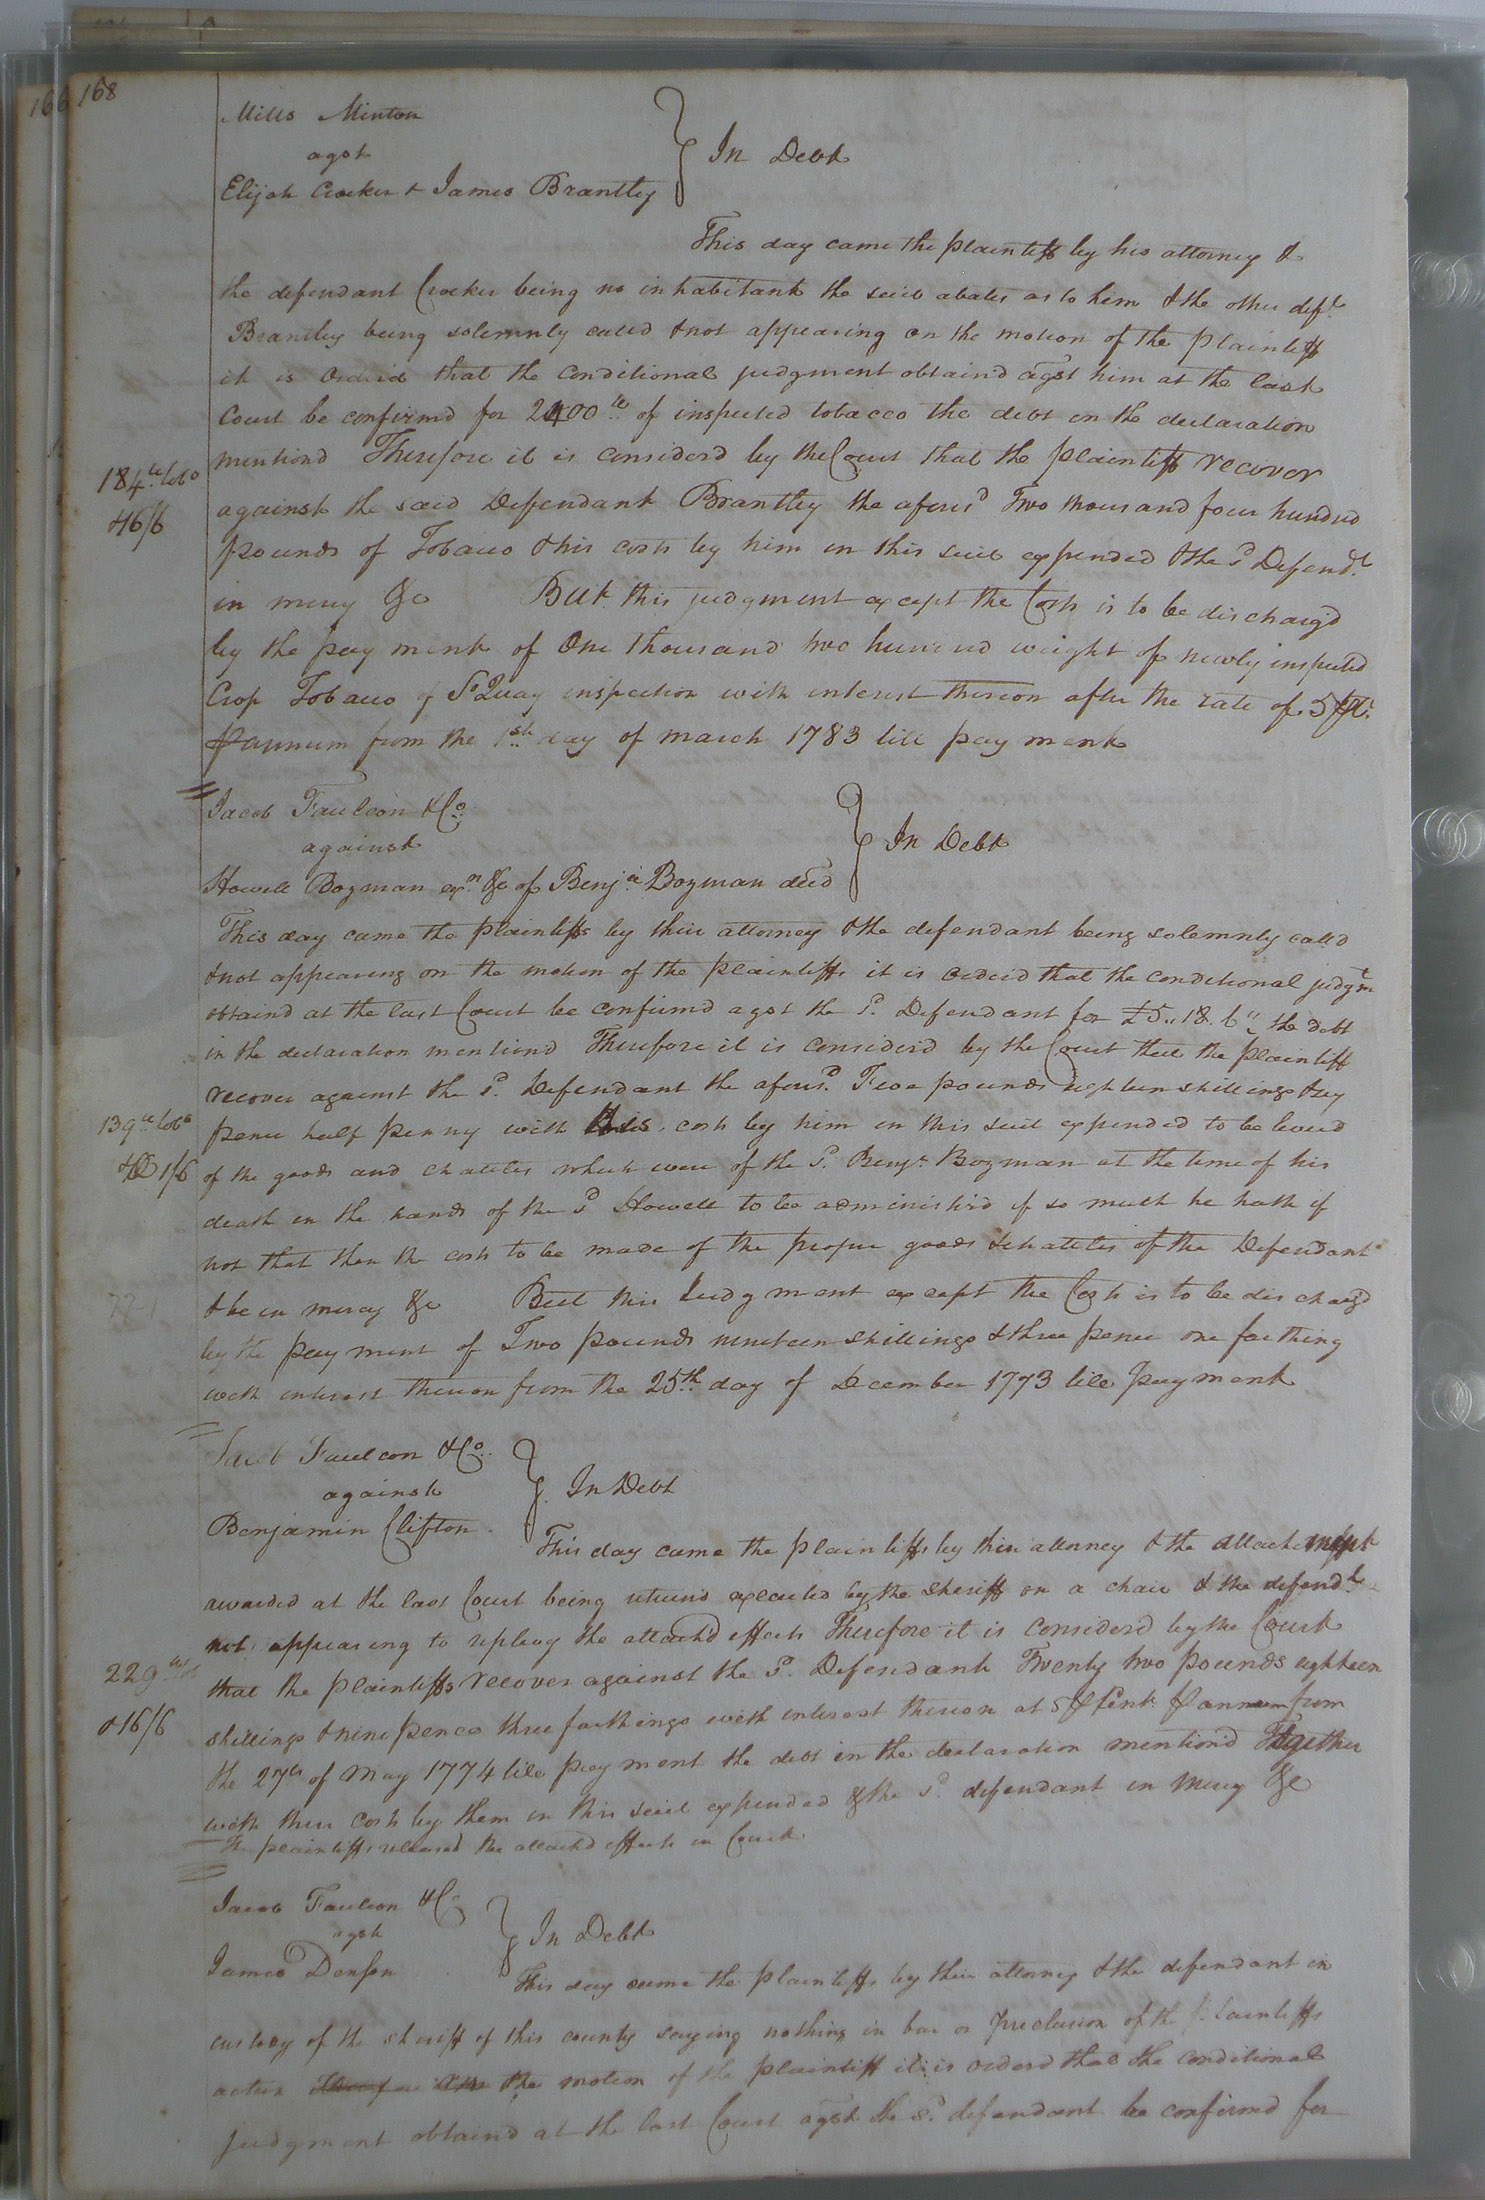 166 168
Mills Minton
agst
Elijah Crocker & James Brantley
In Debt
This day came the plaintiff by his attorney &
the defendant Crocker being no inhabitant the suit abates as to him & the other deft
Brantley being solemnly called & not appearing on the motion of the plaintiff
it is orderd that the conditional judgment obtaind agst him at the last
Court be confirmd for 2400 lb of inspected tobacco the debt in the declaration
mentiond Therefore it is considerd by the Court that the plaintiff recover
184 lb tobo
&6/6
against the said Defendant Brantley the aforesd Two thousand four hundred
pounds of Tobacco & his costs by him in this suit expended & the sd Defendt
in mercy &c But this judgment except the Costs is to be discharg'd
by the payment of One thousand two hundred weight of newly inspected
Crop Tobacco of S Quay inspection with interest thereon after the rate of 5 Ct
annum from the 1st day of march 1783 till payment
Jacob Faulcon & Co
against
Howell Bozman exr &c of Benja Bozman decd
In Debt
This day came the plaintiffs by their attorney & the defendant being solemnly calld
& not appearing on the motion of the plaintiffs it is orderd that the conditional judgmt
obtaind at the last Court be confirmd agst the sd Defendant for £5..18.6 the debt
in the declaration mentiond Therefore it is considerd by the Court that the plaintiff
recover against the sd Defendant the aforesd Five pounds eighteen shillings & six
139 lb tobo
& 1/6
pence half penny with his costs by him in this suit expended to be levied
of the goods and chatties which were of the sd Benja Bozman at the time of his
death in the hands of the sd Howell to be administerd if so much he hath if
not that then the costs to be made of the proper goods & chatties of the Defendant
& be in mercy &c But this Judgment except the Costs is to be discharg'd
by the payment of Two pounds nineteen shillings & three pence one farthing
with interest thereon from the 25th day of December 1773 till payment
Jacob Faulcon & Co
against
Benjamin Clifton
In Debt
This day came the plaintiffs by their attorney & the attachment
awarded at the last Court being returnd executed by the Sheriff on a chair & the defendt
not appearing to replevy the attach'd effects Therefore it is considerd by the Court
229 lb tob
& 16/6
that the plaintiffs recover against the sd Defendant Twenty two pounds eighteen
shillings & nine pence three farthings with interest thereon at 5 Cent annum from
the 27th of May 1774 till payment the debt in the declaration mentiond Together
with their costs by them in this suit expended & the sd defendant in mercy &c
The plaintiffs released the attachd effects in Court
Jacob Faulcon & Co
agst
James Denson
In Debt
This day came the plaintiffs by their attorney & the defendant in
custody of the sheriff of this county saying nothing in bar or preclusion of the plaintiffs
action the motion of the plaintiff it is orderd that the conditional
judgment obtaind at the last Court agst the sd defendant be confirmd for